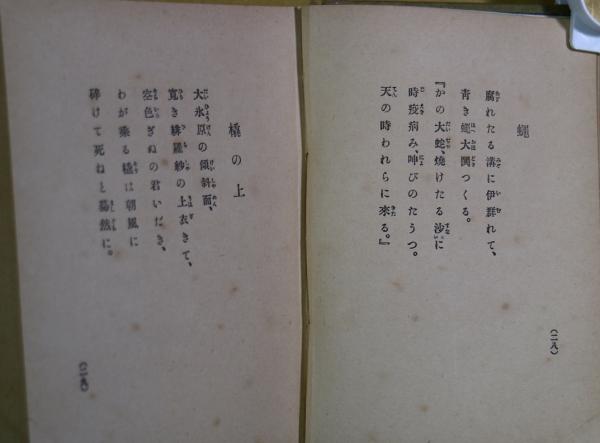 蠅
腐れたる溝に伊群れて、
青き蠅大閧つくる。
『かの大蛇、燒けたる沙に
時疫病み、呻びのたうつ。
天の時われらに來る。』
(二八)
橇の上
大氷原の傾斜面、
寛き緋羅紗の上衣きて、
空色ぎぬの君いだき、
わが乘る橇は朝風に
碎けて死ねと
然に。